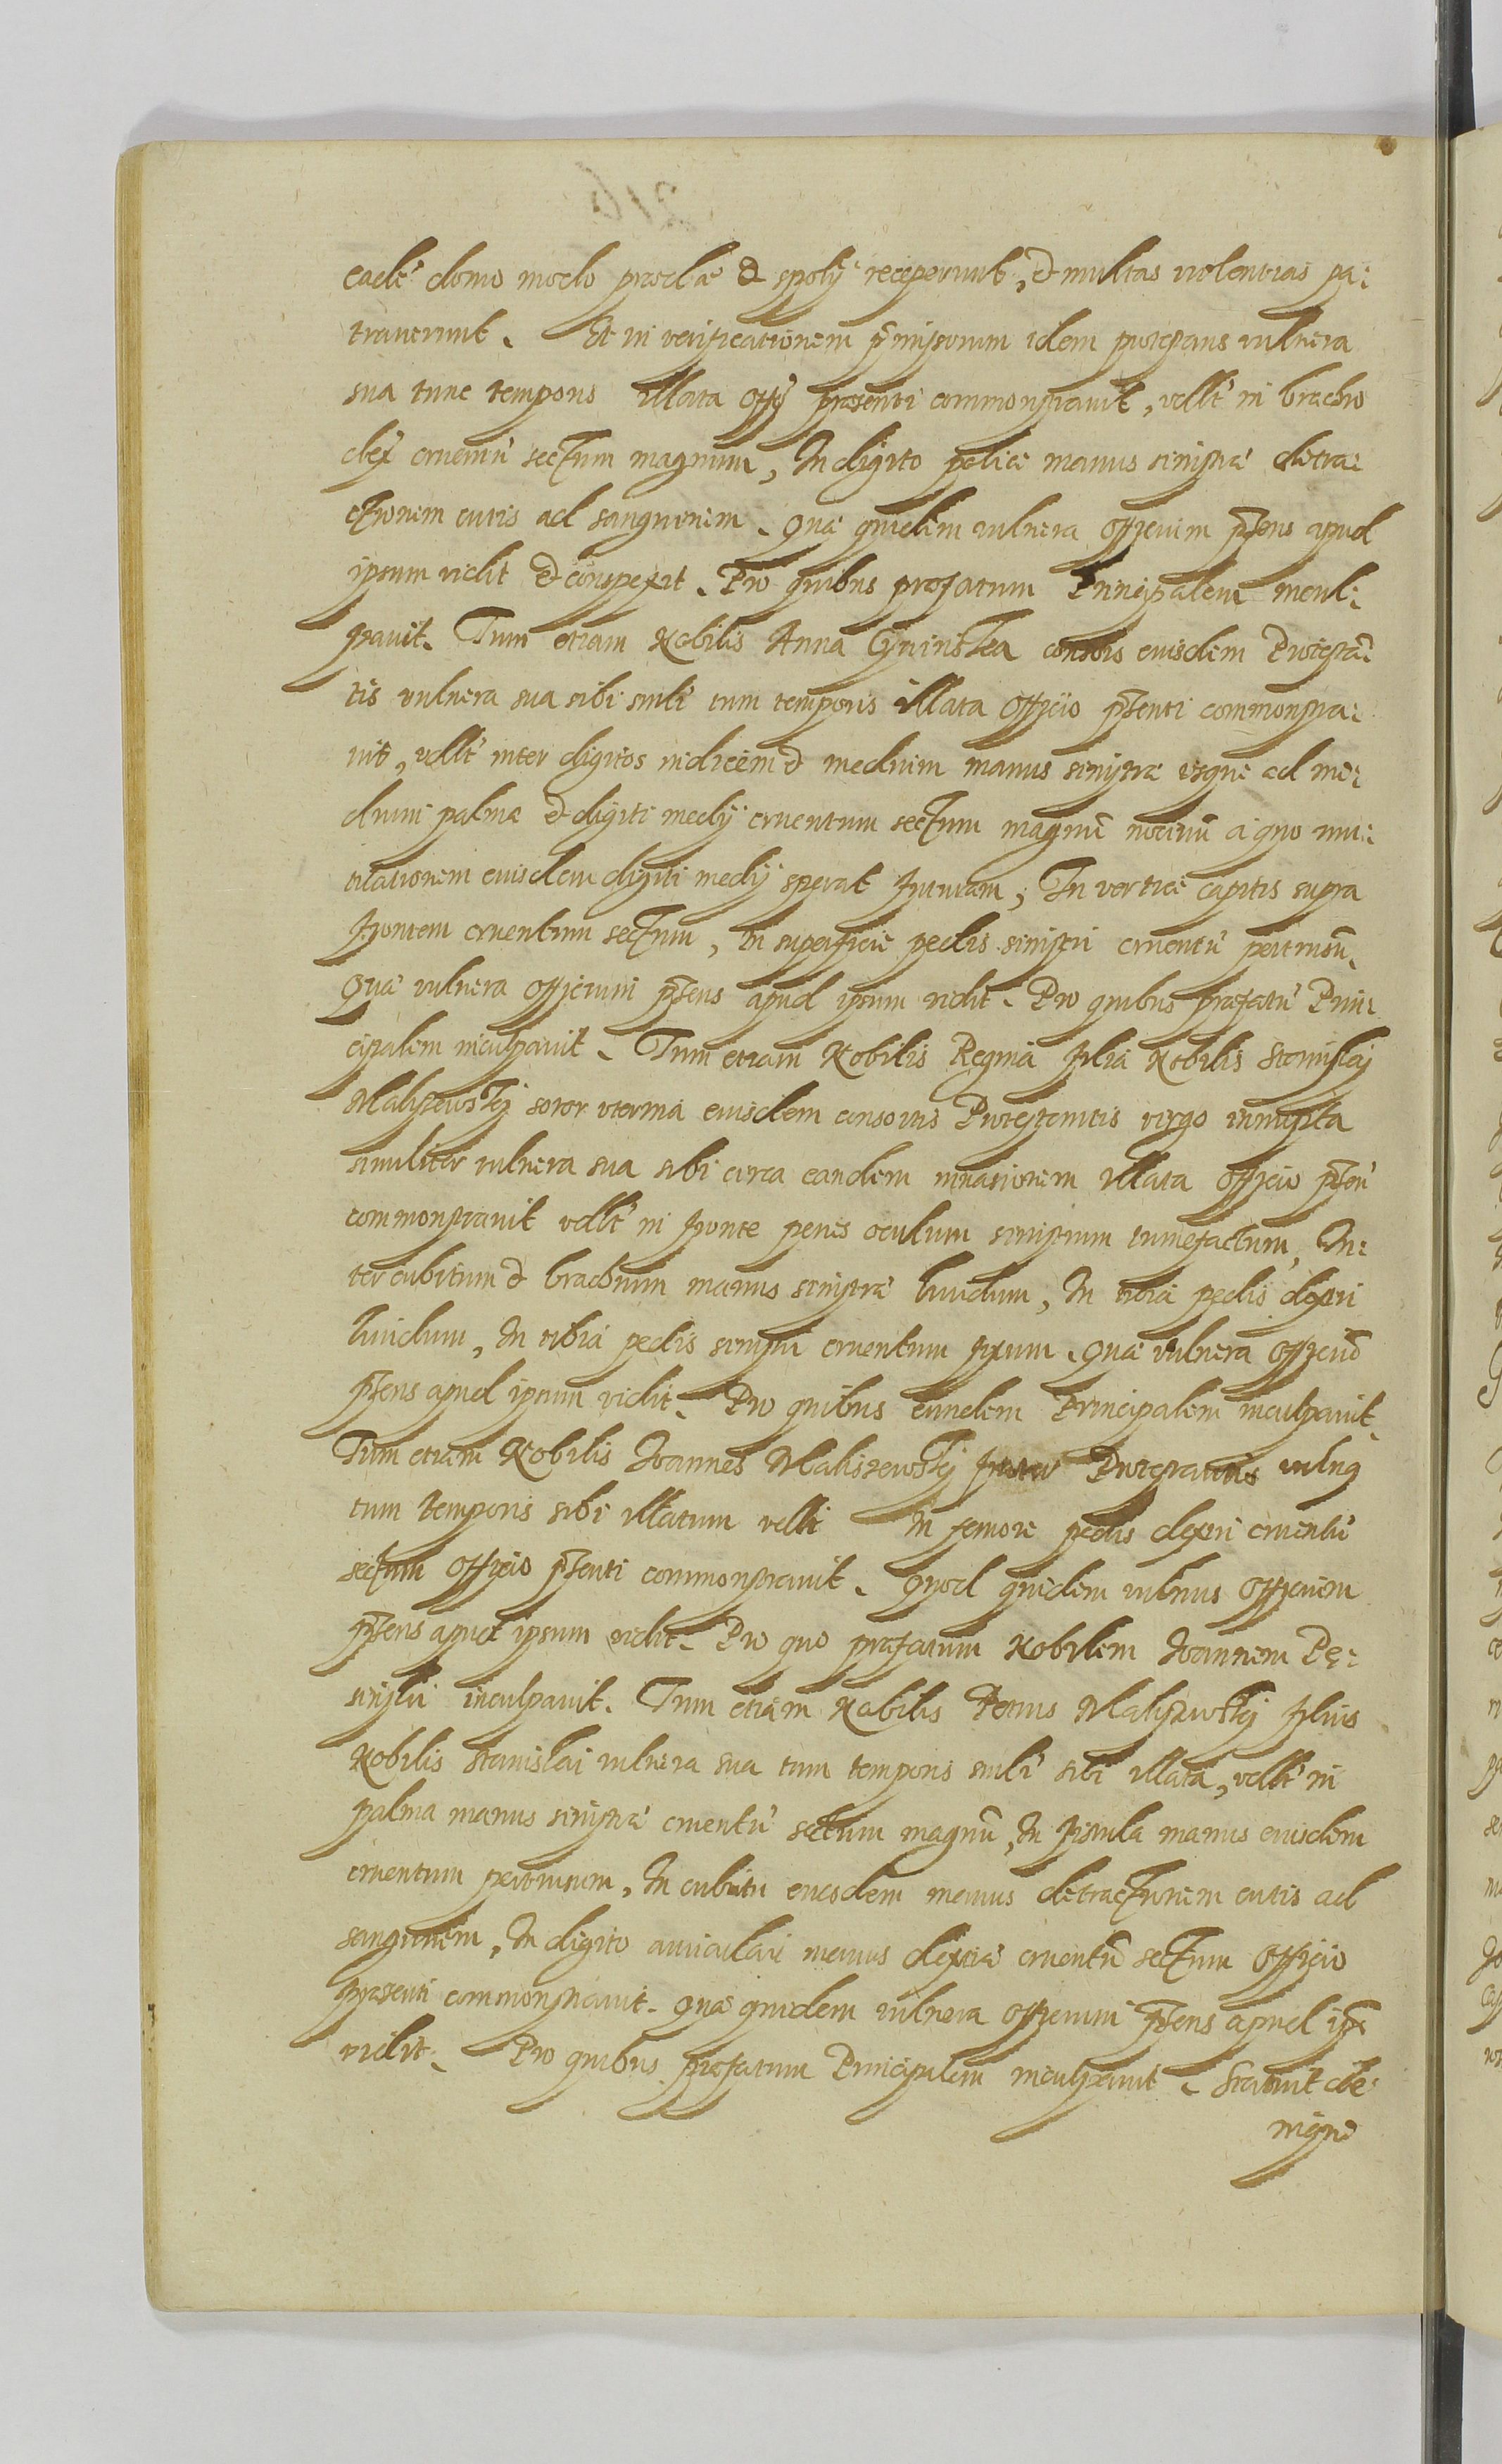 eadē domo modo prædæ & spolÿ receperunt, & multas violentias pa:
trauerunt. Et in verificationem p̄missorum idem protestans vulnera
sua tunc temporis illata offō præsenti commonstrauit, vdlt in brachio
dex cruentū sectum magnum, In digito police manus sinistræ detra:
ctionem cutis ad sanguinem. Quæ quidem vulnera officium p̄sens apud
ipsum vidit & conspexit. Pro quibus præfatum Principalem incul:
pauit. Tum etiam Nobilis Anna consors eiusdem Protestā
tis vulnera sua sibi smli tum temporis illata officio p̄senti commonstra:
uit, vdlt inter digitos indicem & medium manus sinistræ vsque ad me:
dium palmæ & digiti medÿ cruentum sectum magnū nociuū a quo mu:
tilationem eiusdem digiti medÿ sperat futuram, In vertice capitis supra
frontem cruentum sectum, In superficie pedis sinistri cruentū pertusū.
Quæ vulnera officium p̄sens apud ipsum vidit. Pro quibus præfatū Prin:
cipalem inculpauit. Tum etiam Nobilis Regina filia Nobilis Stanislaj
Maliszewskj soror vterina eiusdem consortis Protestantis virgo innupta
similiter vulnera sua sibi circa eandem inuasionem illata officio p̄sen
commonstrauit vdlt in fronte penes oculum sinistrum tumefactum, In:
ter cubitum & brachium manus sinistræ liuidum, In tibia pedis dextri
liuidum, In tibia pedis sinistri cruentum fixum. Quæ vulnera officiū
p̄sens apud ipsum vidit. Pro quibus eundem Principalem inculpauit.
Tum etiam Nobilis Joannes Maliszewskj frater Protestantis vulnq
tum temporis sibi illatum vdlt In femore pedis dextri cruentū
sectum officio p̄senti commonstrauit. Quod quidem vulnus officium
p̄sens apud ipsum vidit. Pro quo præfatum Nobilem Joannem Pę:
inculpauit. Tum etiam Nobilis Petrus Maliszewskj filius
Nobilis Stanislai vulnera sua tum temporis smli sibi illata, vdlt in
palma manus sinistræ cruentū sectum magnū, In fistula manus eiusdem
cruentum pertusum, In cubitu eiusdem manus detractionem cutis ad
sanguinem, In digito auriculari manus dextræ cruentū sectum officio
præsenti commonstrauit. Quæ quidem vulnera officium p̄sens apud ipm̄
vidit. Pro quibus præfatum Principalem inculpauit. Statuit de:
nique